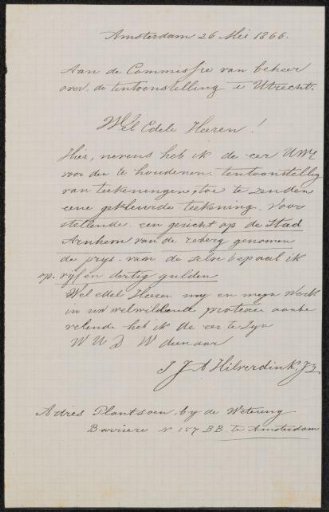 Amsterdam 26 Mei 1866.
Aan de Commissie van beheer
over de tentoonstelling te Utrecht.
Wel Edele Heeren!
Hier, nevens heb ik de eer UWE
voor de te houdenen tentoonstelling
van teekeningen, toe te zenden
eene gekleurde teekening. Voor
stellende een gezicht op de Stad
Arnhem van de genomen
de prys van de zelve bepaal ik
op vijf en dertig gulden
Wel edel Heeren my en myn Werk
in uw welwillende protexie aanbe
velende heb ik de eer te zyn
W U D W dienaar
J J A Hilverdink, Jz.
Adres Plantsoen by de Wetering
Barriere N 157 BB te Amsterdam